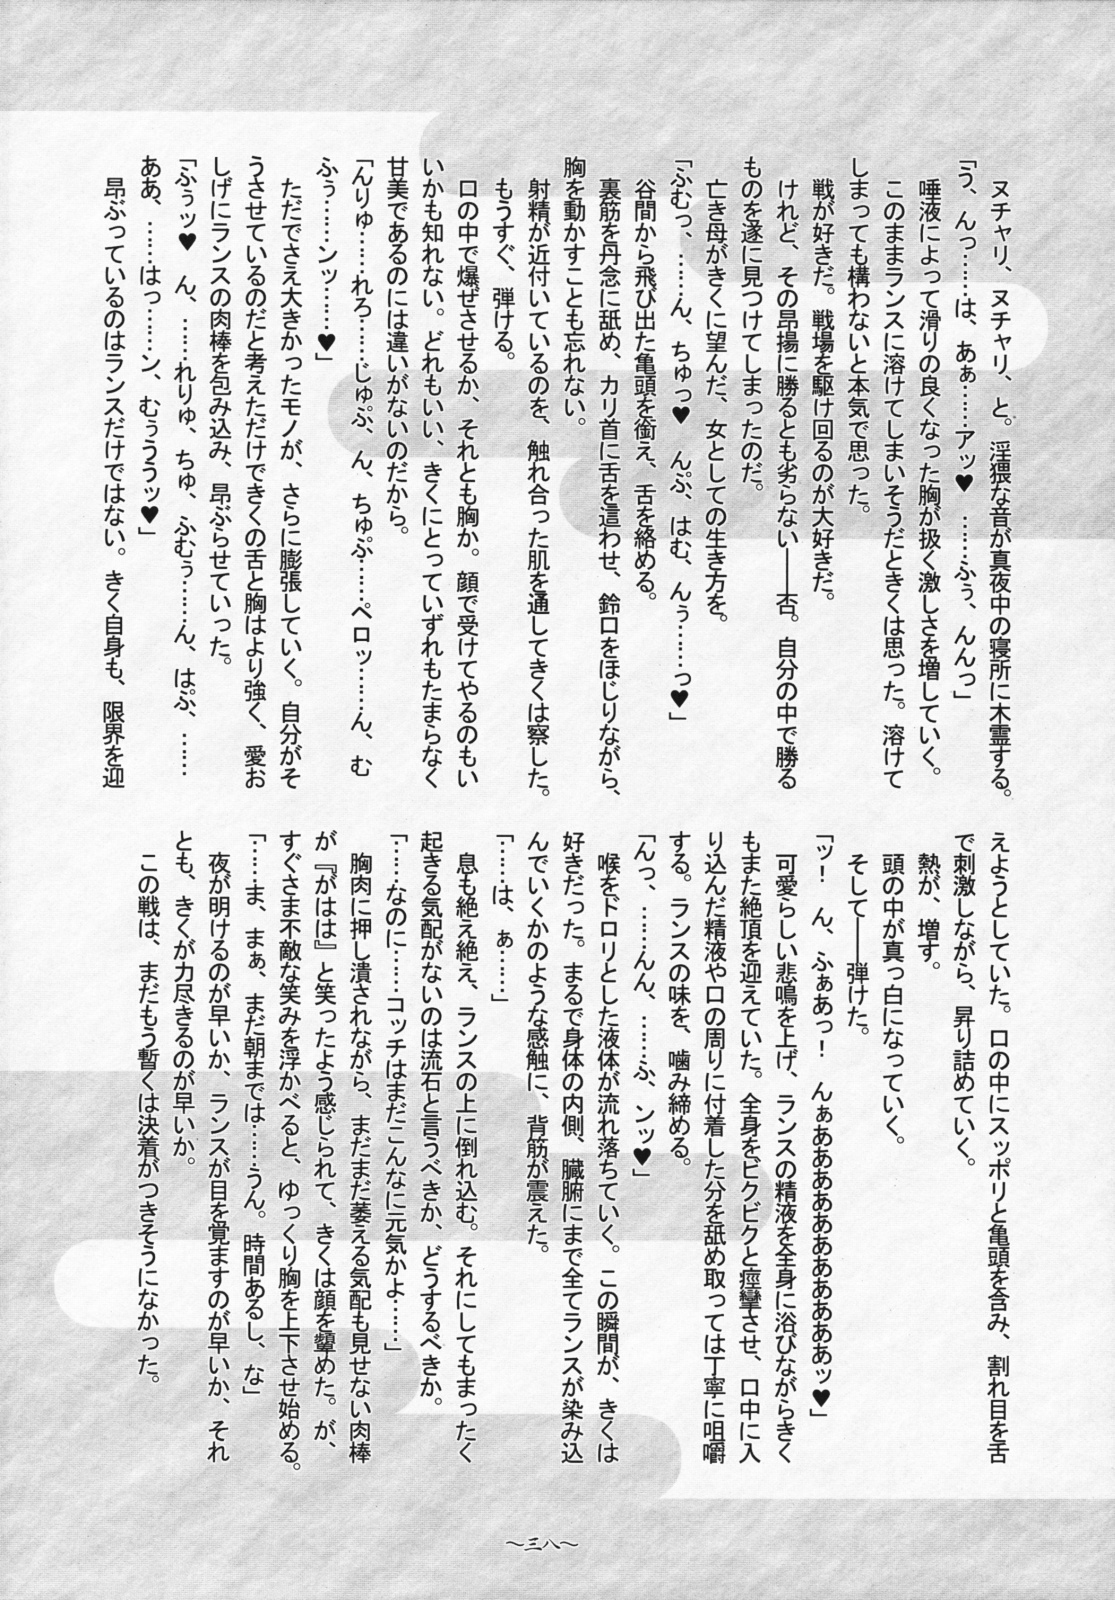 ヌチャリ、ヌチャリ、と。淫猥な音が真夜中の寝所に木霊する。
「う、んっ……は、あぁ……アッ♥ ……ふぅ、んんっ」
唾液によって滑りの良くなった胸が扱く激しさを増していく。
このままランスに溶けてしまいそうだときくは思った。溶けて
しまっても構わないと本気で思った。
戦が好きだ。戦場を駆け回るのが大好きだ。
けれど、その昂揚に勝るとも劣らない――否。自分の中で勝る
ものを遂に見つけてしまったのだ。
亡き母がきくに望んだ、女としての生き方を。
「ふむっ、……ん、ちゅっ♥ んぷ、はむ、んぅ……っ♥」
谷間から飛び出た亀頭を銜え、舌を絡める。
裏筋を丹念に舐め、カリ首に舌を這わせ、鈴口をほじりながら、
胸を動かすことも忘れない。
射精が近付いているのを、触れ合った肌を通してきくは察した。
もうすぐ、弾ける。
口の中で爆ぜさせるか、それとも胸か。顔で受けてやるのもい
いかも知れない。どれもいい、きくにとっていずれもたまらなく
甘美であるのには違いがないのだから。
「んりゅ……れろ……じゅぷ、ん、ちゅぷ……ペロッ……ん、む
ふぅ……ンッ……♥」
ただでさえ大きかったモノが、さらに膨張していく。自分がそ
うさせているのだと考えただけできくの舌と胸はより強く、愛お
しげにランスの肉棒を包み込み、昂ぶらせていった。
「ふぅッ♥ ん、……れりゅ、ちゅ、ふむぅ……ん、はぷ、……
ああ、……はっ……ン、むぅううッ♥」
昂ぶっているのはランスだけではない。きく自身も、限界を迎
えようとしていた。口の中にスッポリと亀頭を含み、割れ目を舌
で刺激しながら、昇り詰めていく。
熱が、増す。
頭の中が真っ白になっていく。
そして――弾けた。
「ッ！ ん、ふぁあっ！ んぁああああああああああああッ♥」
可愛らしい悲鳴を上げ、ランスの精液を全身に浴びながらきく
もまた絶頂を迎えていた。全身をビクビクと痙攣させ、口中に入
り込んだ精液や口の周りに付着した分を舐め取っては丁寧に咀嚼
する。ランスの味を、噛み締める。
「んっ、……んん、……ふ、ンッ♥」
喉をドロリとした液体が流れ落ちていく。この瞬間が、きくは
好きだった。まるで身体の内側、臓腑にまで全てランスが染み込
んでいくかのような感触に、背筋が震えた。
「……は、ぁ……」
息も絶え絶え、ランスの上に倒れ込む。それにしてもまったく
起きる気配がないのは流石と言うべきか、どうするべきか。
「……なのに……コッチはまだこんなに元気かよ……」
胸肉に押し潰されながら、まだまだ萎える気配も見せない肉棒
が『がはは』と笑ったよう感じられて、きくは顔を顰めた。が、
すぐさま不敵な笑みを浮かべると、ゆっくり胸を上下させ始める。
「……ま、まぁ、まだ朝までは……うん。時間あるし、な」
夜が明けるのが早いか、ランスが目を覚ますのが早いか、それ
とも、きくが力尽きるのが早いか。
この戦は、まだもう暫くは決着がつきそうになかった。
～三八～